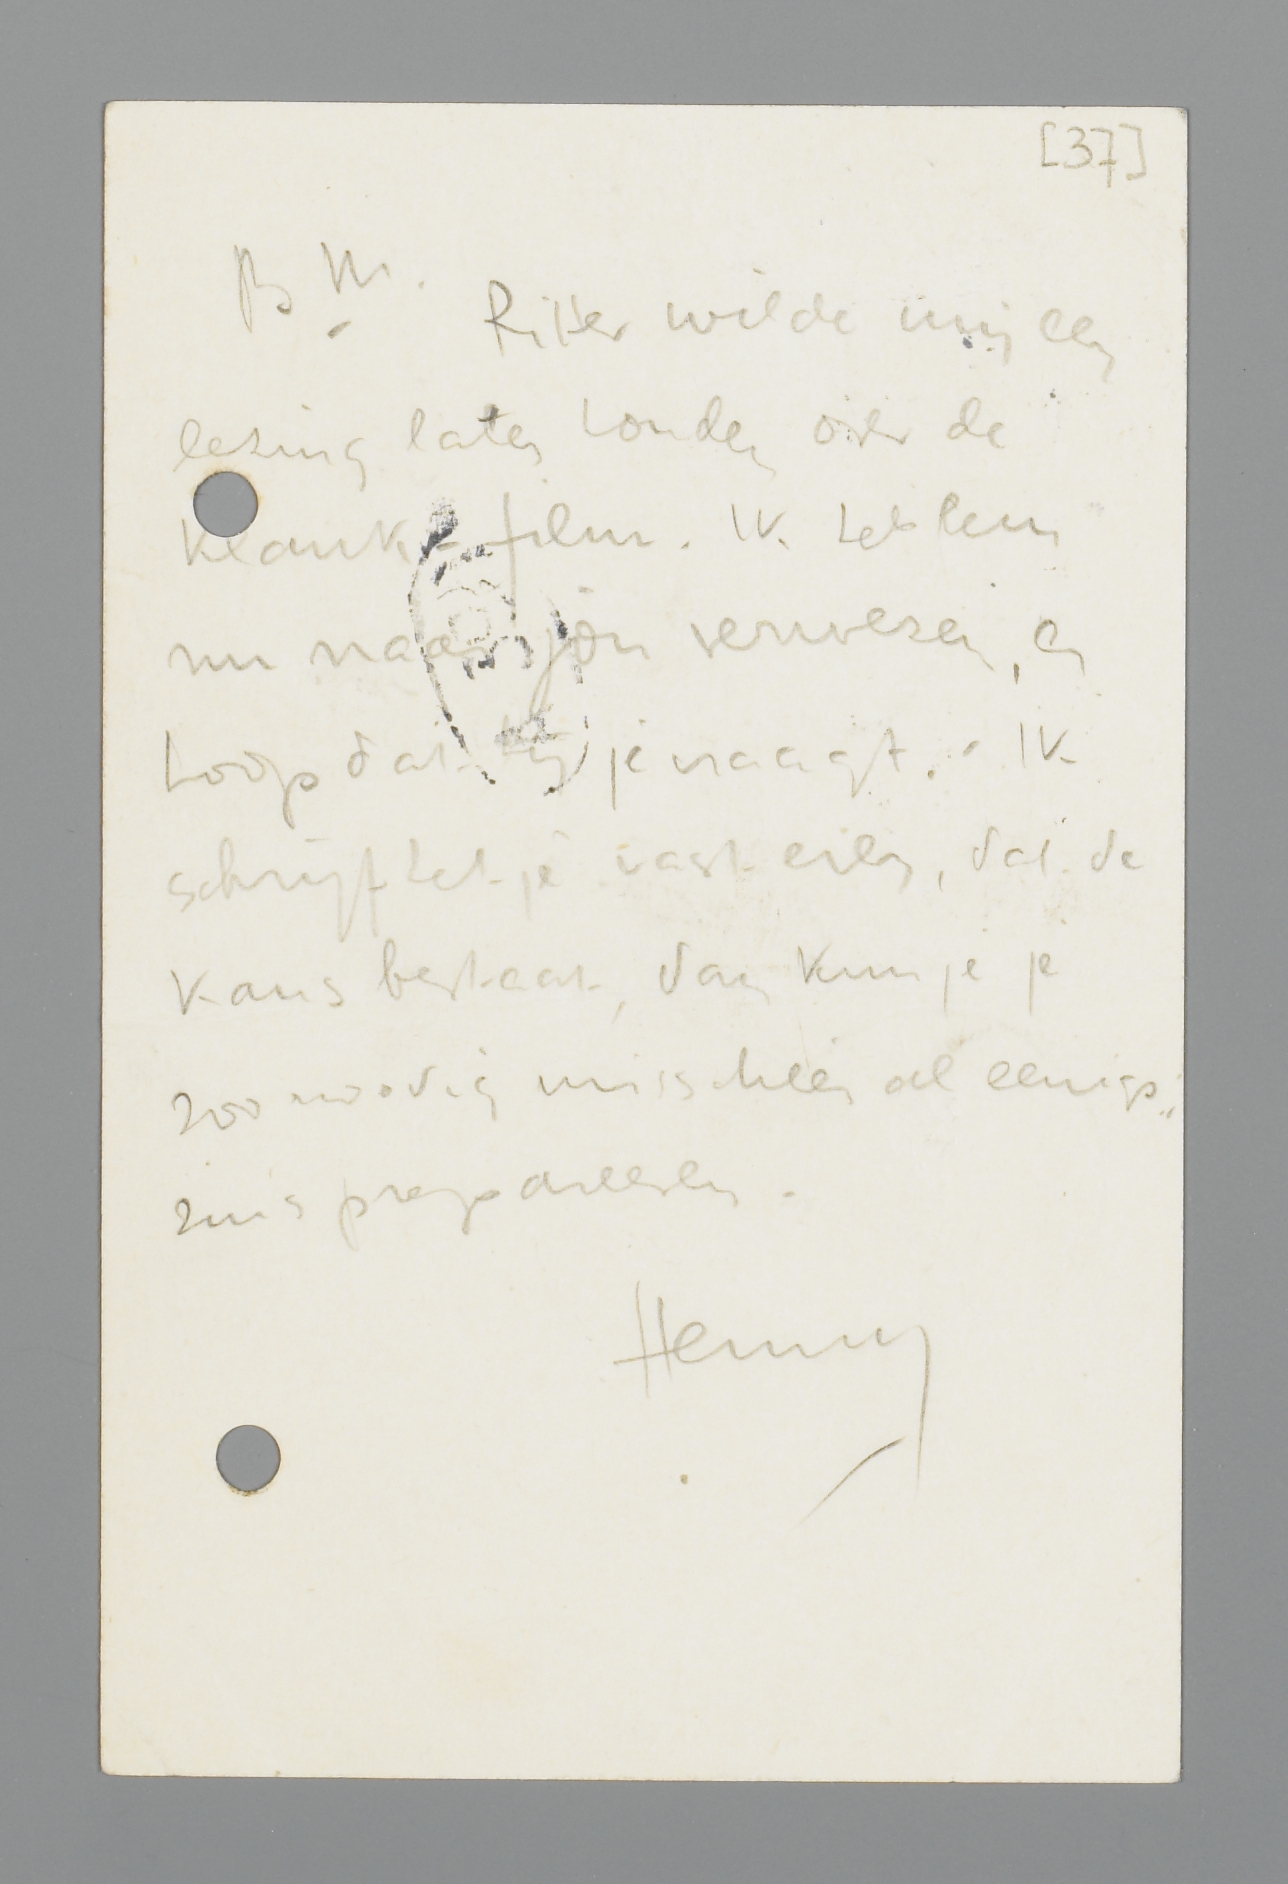 [37]
B M.
Ritter wilde mij een
lezing laten houden over de
klank-film. Ik heb hem
nu naar jou verwezen, en
hoop dat hij je vraagt. Ik
schrijf het je vast even, dat de
kans bestaat, dan kun je je
zoo noodig misschien al eenigs„
zins prepareeren.
Henny